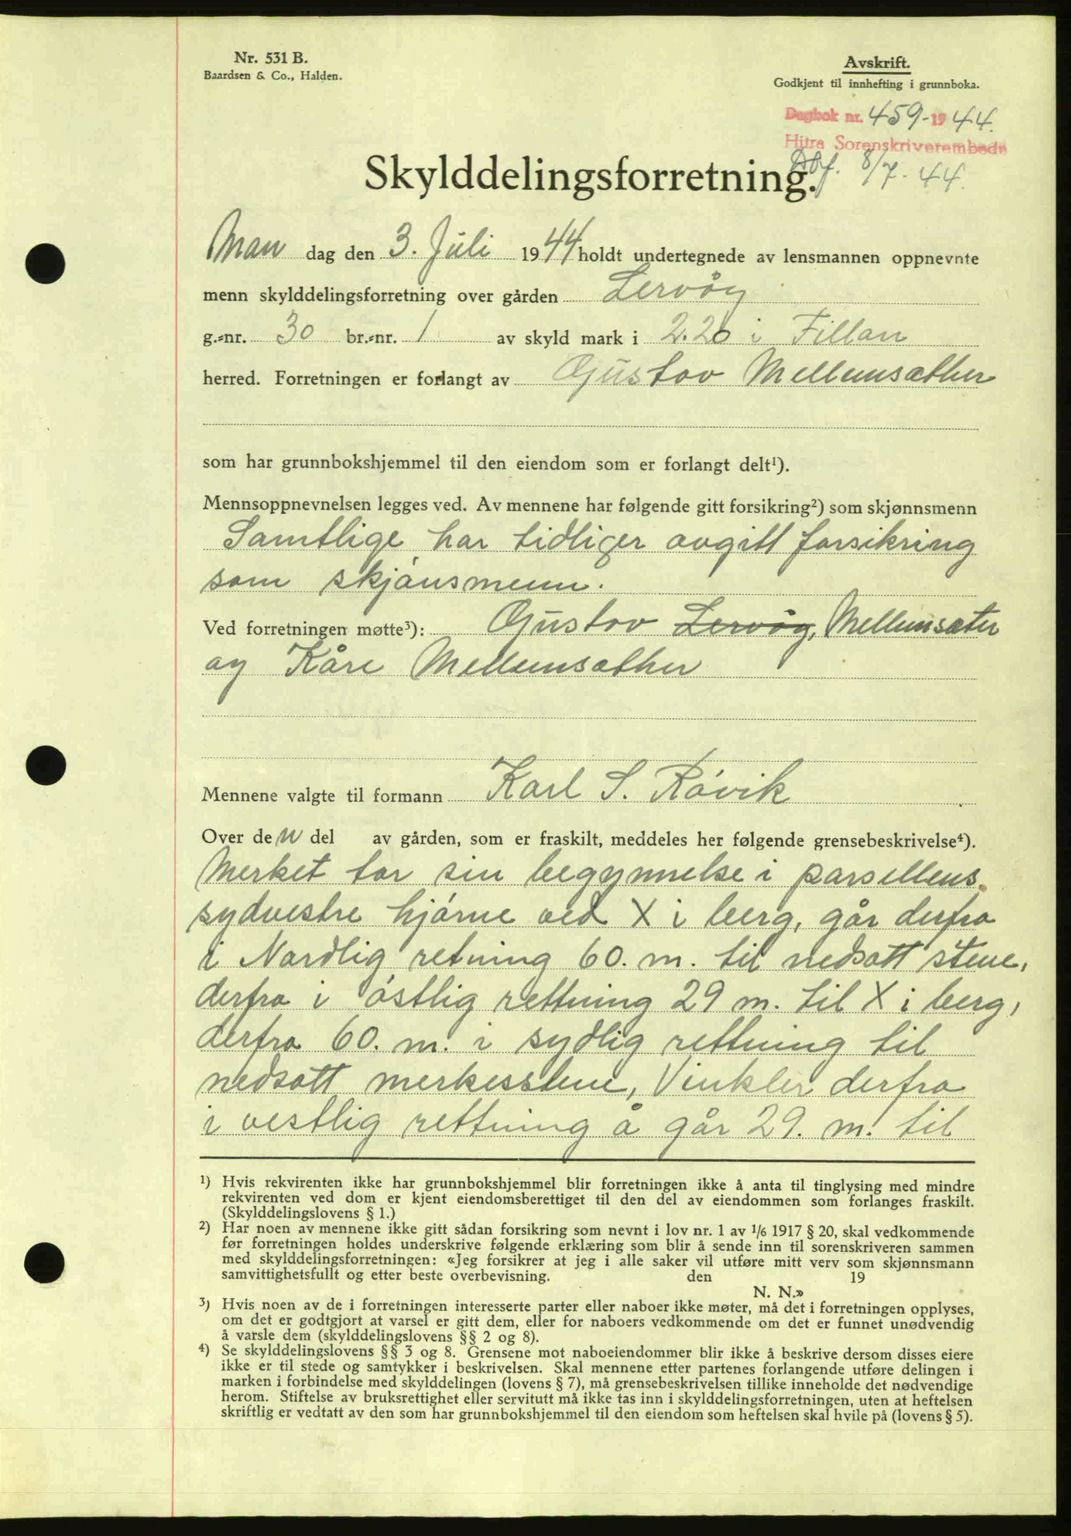 Nr. 531 B.
Baardsen & Co., Halden.
Avskrift.
Godkjent til innhefting i grunnboka.
Dagbok nr. 459-1944.
Hitra Sorenskriverembede
8/7-44.
Skylddelingsforretning.
Man dag den 3. Juli 1944 holdt undertegnede av lensmannen oppnevnte
menn skylddelingsforretning over gården Lervåg
g.-nr. 30 br.-nr. 1 av skyld mark i 2.20 i Fillan
herred. Forretningen er forlangt av Gustav Mellemsæther
som har grunnbokshjemmel til den eiendom som er forlangt delt¹).
Mennsoppnevnelsen legges ved. Av mennene har følgende gitt forsikring²) som skjønnsmenn
Samtlige har tidliger avgitt forsikring
som skjønsmenn.
Ved forretningen møtte³): Gustav Lervåg, Mellemsæter
og Kåre Mellemsæther
Mennene valgte til formann Karl S. Røvik
Over den del av gården, som er fraskilt, meddeles her følgende grensebeskrivelse⁴).
Merket tar sin begynnelse i parsellens
sydvestre hjørne ved X i berg, går derfra
i Nordlig retning 60. m. til nedsatt stene,
derfra i østlig rettning 29 m. til X i berg,
derfra 60. m. i sydlig rettning til
nedsatt merkesstene, Vinkler derfra
i vestlig rettning å går 29. m. til
¹) Hvis rekvirenten ikke har grunnbokshjemmel blir forretningen ikke å anta til tinglysing med mindre
rekvirenten ved dom er kjent eiendomsberettiget til den del av eiendommen som forlanges fraskilt.
(Skylddelingslovens § 1.)
²) Har noen av mennene ikke gitt sådan forsikring som nevnt i lov nr. 1 av 1/6 1917 § 20, skal vedkommende
før forretningen holdes underskrive følgende erklæring som blir å sende inn til sorenskriveren sammen
med skylddelingsforretningen: «Jeg forsikrer at jeg i alle saker vil utføre mitt verv som skjønnsmann
samvittighetsfullt og etter beste overbevisning. den 19
N. N.»
³) Hvis noen av de i forretningen interesserte parter eller naboer ikke møter, må det i forretningen opplyses,
om det er godtgjort at varsel er gitt dem, eller for naboers vedkommende om det er funnet unødvendig
å varsle dem (skylddelingslovens §§ 2 og 8).
⁴) Se skylddelingslovens §§ 3 og 8. Grensene mot naboeiendommer blir ikke å beskrive dersom disses eiere
ikke er til stede og samtykker i beskrivelsen. Skal mennene etter partenes forlangende utføre delingen i
marken i forbindelse med skylddelingen (lovens § 7), må grensebeskrivelsen tillike inneholde det nødvendige
herom. Stiftelse av bruksrettighet eller servitutt må ikke tas inn i skylddelingsforretningen, uten at heftelsen
skriftlig er vedtatt av den som har grunnbokshjemmel til den eiendom som heftelsen skal hvile på (lovens § 5).